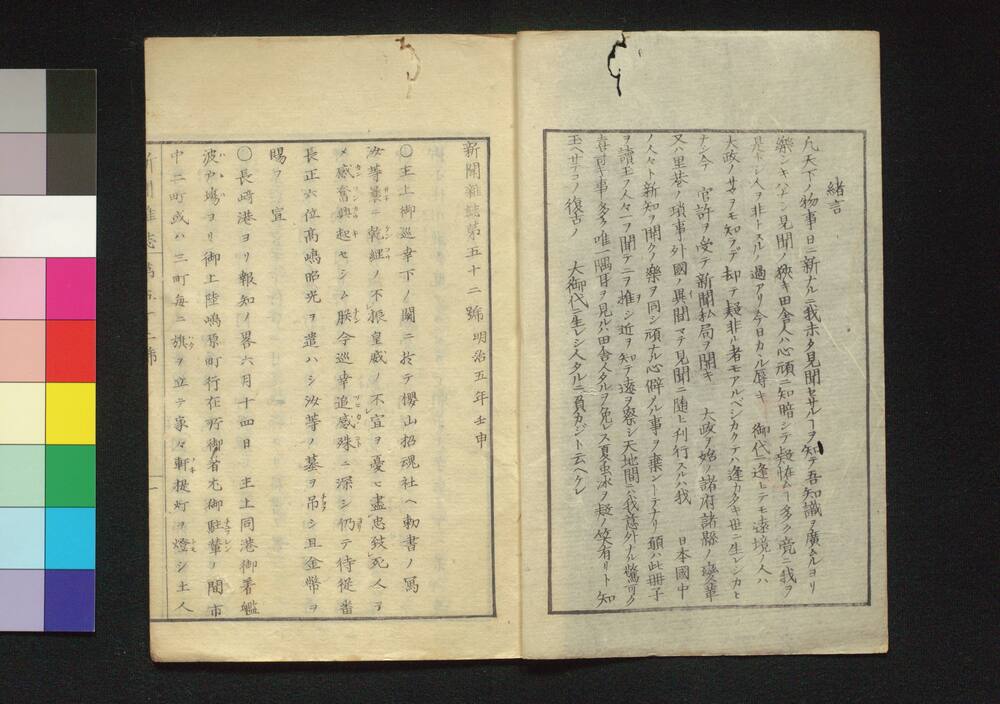 緒言
凡天下ノ物事日ニ新ナルニ我未タ見聞セサルヿヲ知テ吾知識ヲ廣ムルヨリ
樂シキハナシ見聞ノ狹キ田舎人ハ心頑ニ知暗シテ疑怪ムヿ多ク竟ニ我ヲ
是トシ人ヲ非トスルノ過アリ今日カヽル辱キ 御代ニ逢ヒテモ遠境ノ人ハ
大政ノサマヲモ知ラデ却テ疑非ル者モアルベシカクテハ逢カタキ世ニ生レシカヒ
ナシ今 官許ヲ受テ新聞私局ヲ開キ 大政ヲ始メ諸府諸縣ノ變革
又ハ里巷ノ瑣事外國ノ異聞マテ見聞ニ随ヒ刊行スルハ我 日本國中
ノ人々ト新知ヲ開ク樂ヲ同シ頑ナル心僻メル事ヲ棄シヿナリ願ハ此册子
ヲ讀玉フ人々一ヲ聞テニヲ推シ近ヲ知テ遠ヲ察シ天地間ニハ我意外ノル驚可ク
喜可キ事多ク唯一隅耳ヲ見ルハ田舎人タルヲ免レス夏虫氷ヲ疑ノ笑有リト知
玉ヘサテコソ復古ノ 大御代ニ生レシ人タルニ負カジト云ヘケレ
新聞雜誌第五十二號 明治五年壬申
〇主上御巡幸下ノ關ニ於テ櫻山招魂社ヘ勅書ノ寫
汝等曩ニ乾綱ノ不振皇威ノ不宣ヲ憂ヒ盡忠致死人ヲ
メ感奮興起セシム朕今巡幸追感殊ニ深シ仍テ侍從番
長正六位髙嶋昭光ヲ遣ハシ汝等ノ墓ヲ吊シ且金幣ヲ
賜フ 宣
〇長﨑港ヨリ報知ノ畧六月十四日 主上同港御著艦
波戸塲ヨリ御上陸嶋原町行在所御著尤御駐輦ノ間市
中二町或ハ三町毎ニ旗ヲ立テ家々軒提灯ヲ燈シ土人
新聞雜誌 第五十二號 一